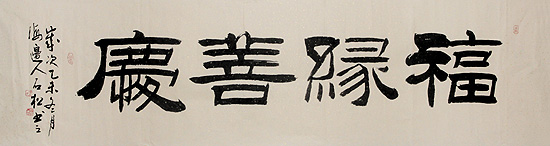 福緣善慶
歲次乙未冬月
海邊人石松書